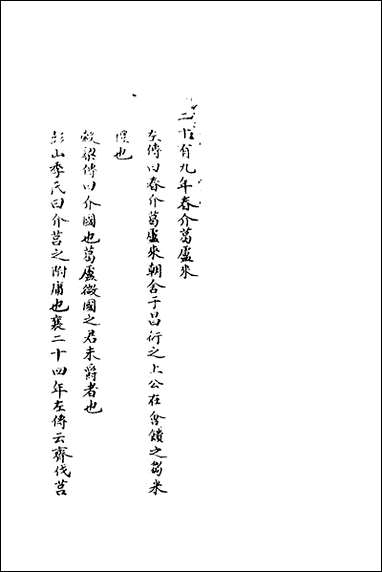 二十有九年春介葛盧來
左傳曰春介葛盧來朝舍于昌衍之上公在會饋之芻米
禮也
穀梁傳曰介國也葛盧微國之君未爵者也
彭山季氏曰介莒之附庸也襄二十四年左傳云齊伐莒